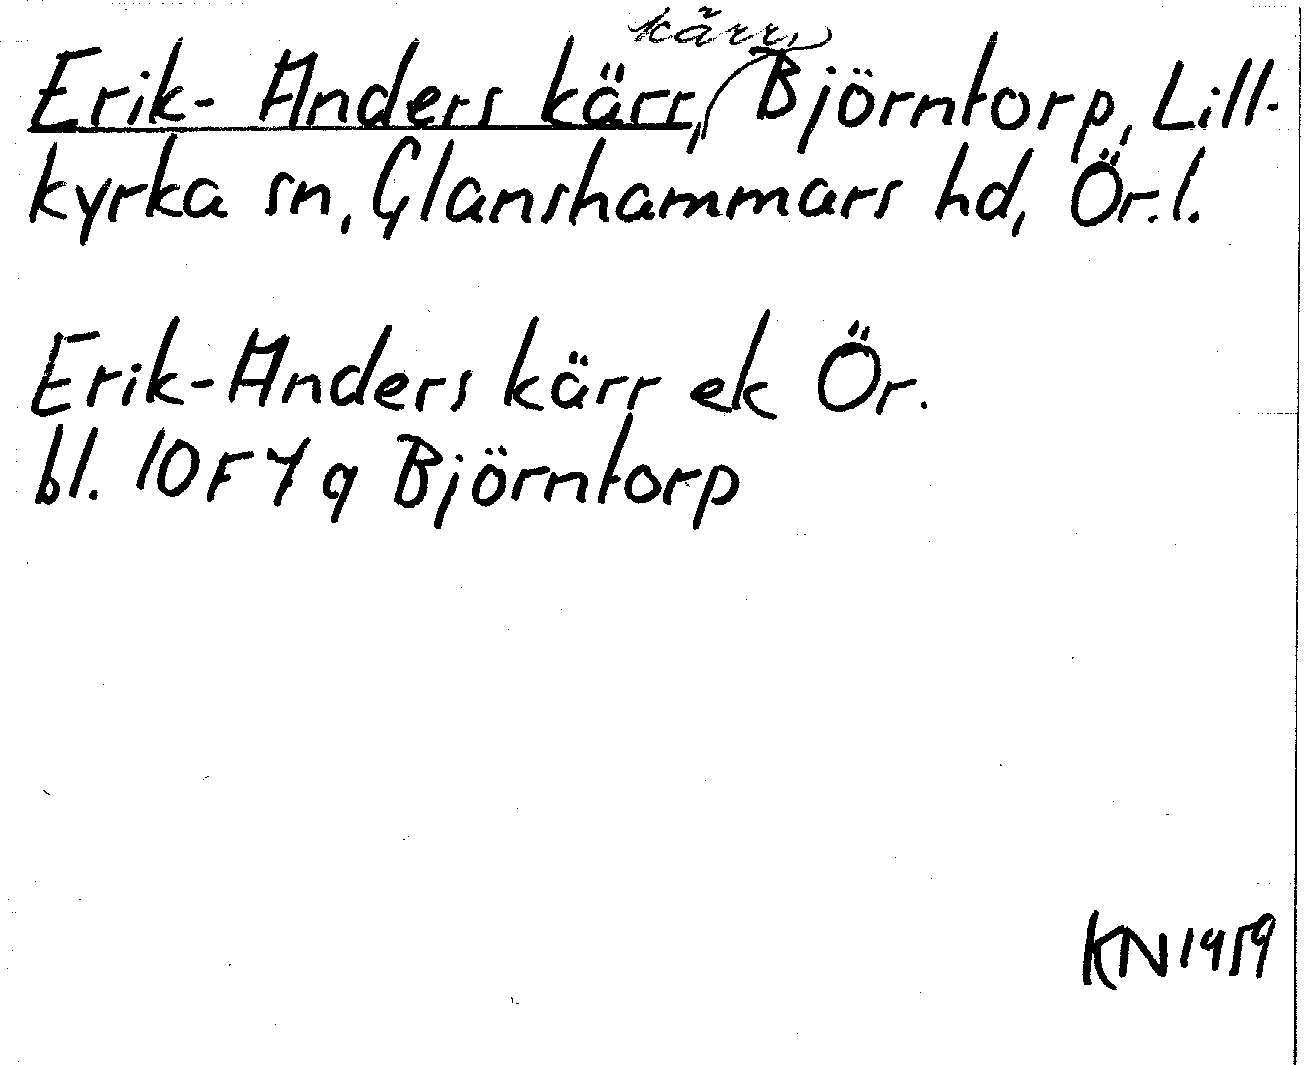 kärr,
Erik-Anders kärr, Björntorp, Lill-
kyrka sn, Glanshammars hd, Ör. l.
Erik-Anders kärr ek Ör.
bl. 10F7g Björntorp
KN 1959